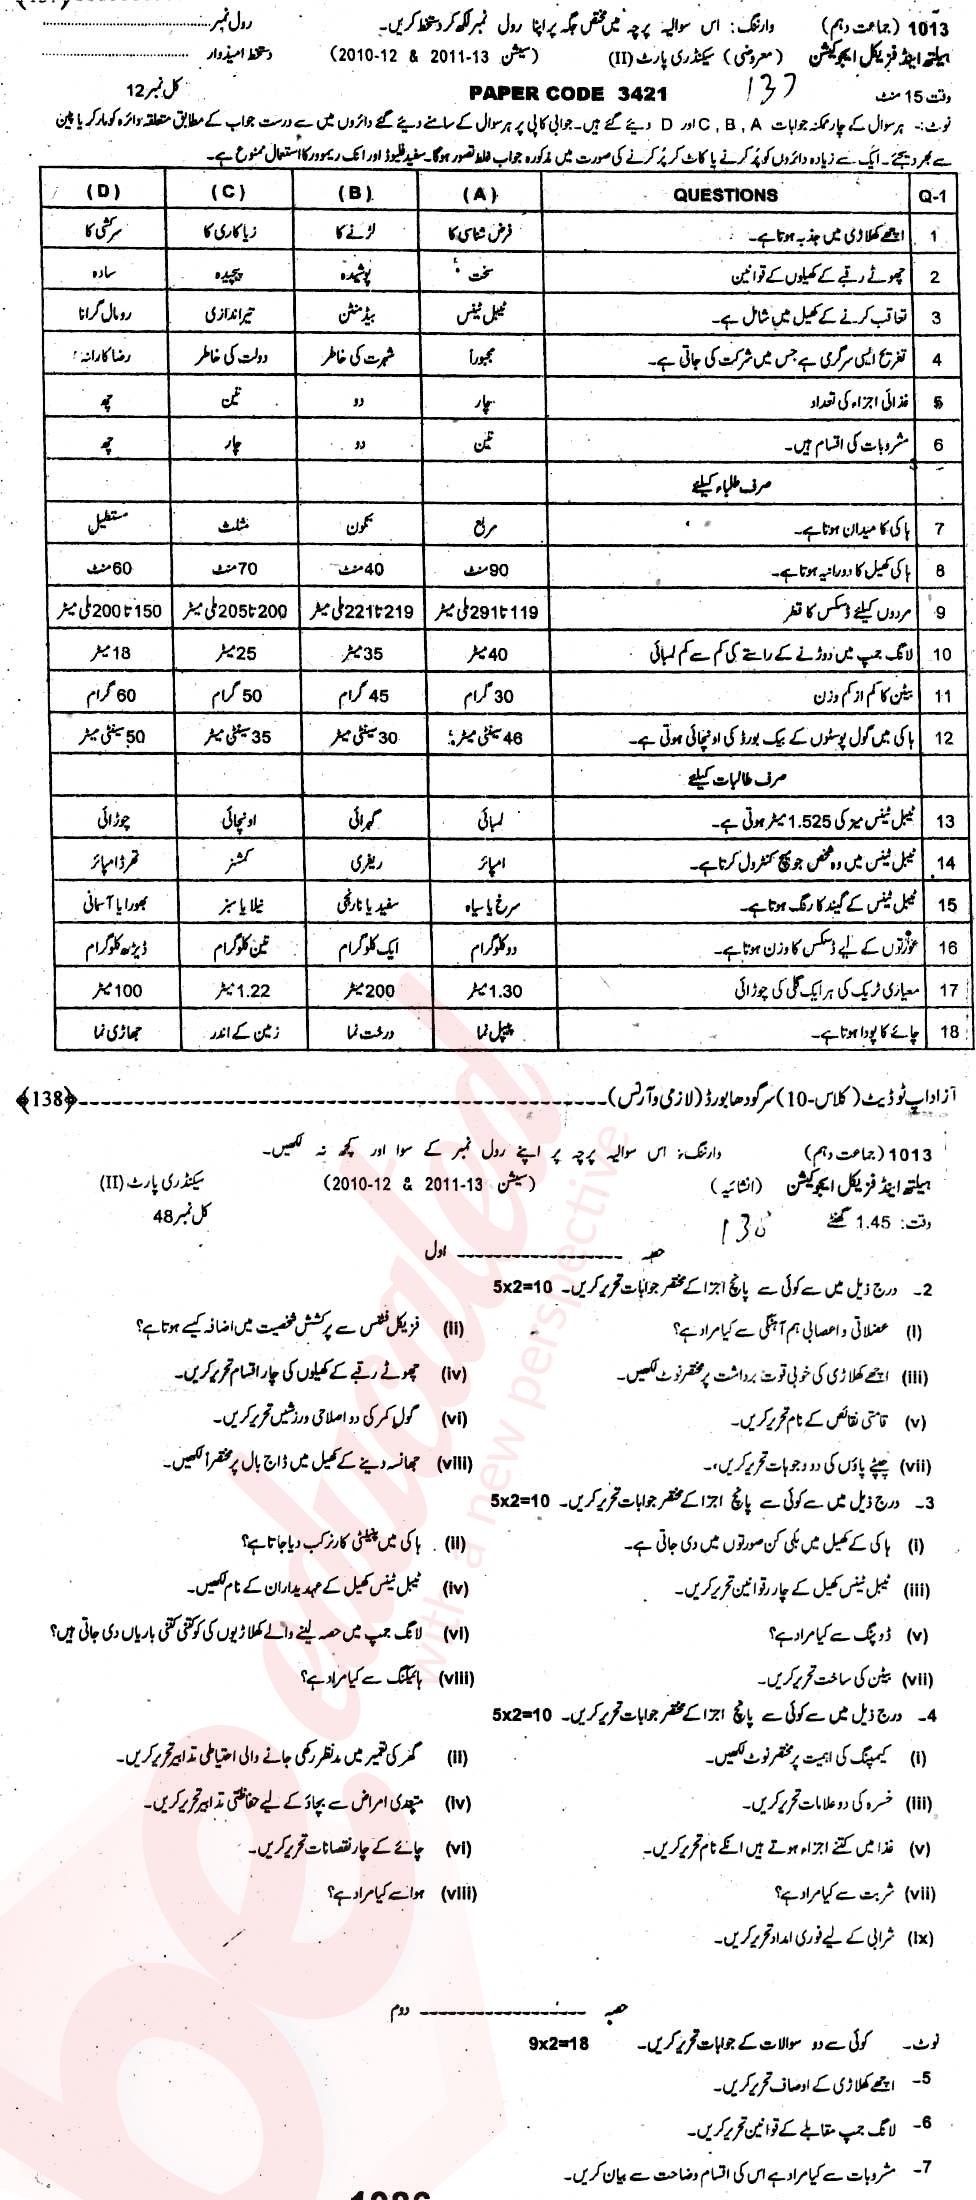 1013 (جماعت دہم) وارننگ: اس سوالیہ پرچہ میں مختص جگہ پر اپنا رول نمبر لکھ کر دستخط کریں۔ رول نمبر
ہیلتھ اینڈ فزیکل ایجوکیشن (معروضی) سیکنڈری پارٹ (II) (سیشن 2011-13 & 2010-12) دستخط امیدوار
وقت 15 منٹ 137 PAPER CODE 3421 کل نمبر 12
نوٹ:- ہر سوال کے چار ممکنہ جوابات C , B , A اور D دیئے گئے ہیں۔ جوابی کاپی پر ہر سوال کے سامنے دیئے گئے دائروں میں سے درست جواب کے مطابق متعلقہ دائرہ کو مارکر یا پین
سے بھر دیجئے۔ ایک سے زیادہ دائروں کو پُر کرنے یا کاٹ کر پُر کرنے کی صورت میں مذکورہ جواب غلط تصور ہوگا۔ سفید فلیوڈ اور انک ریموور کا استعمال ممنوع ہے۔
Q-1 QUESTIONS (A) (B) (C) (D)
1 اچھے کھلاڑی میں جذبہ ہوتا ہے۔ فرض شناسی کا لڑنے کا ریاکاری کا سرکشی کا
2 چھوٹے رقبے کے کھیلوں کے قوانین سخت پوشیدہ پیچیدہ سادہ
3 تعاقب کرنے کے کھیل میں شامل ہے۔ ٹیبل ٹینس بیڈمنٹن تیر اندازی رومال گرانا
4 تفریح ایسی سرگرمی ہے جس میں شرکت کی جاتی ہے۔ مجبوراً شہرت کی خاطر دولت کی خاطر رضاکارانہ
5 غذائی اجزاء کی تعداد چار دو تین چھ
6 مشروبات کی اقسام ہیں۔ تین دو چار چھ
صرف طلباء کیلئے
7 ہاکی کا میدان ہوتا ہے۔ مربع تکون مثلث مستطیل
8 ہاکی کھیل کا دورانیہ ہوتا ہے۔ 90 منٹ 40 منٹ 70 منٹ 60 منٹ
9 مردوں کیلئے ڈسکس کا قطر 119 تا 291 ملی میٹر 219 تا 221 ملی میٹر 200 تا 205 ملی میٹر 150 تا 200 ملی میٹر
10 لانگ جمپ میں دوڑنے کے راستے کی کم سے کم لمبائی 40 میٹر 35 میٹر 25 میٹر 18 میٹر
11 بیٹن کا کم از کم وزن 30 گرام 45 گرام 50 گرام 60 گرام
12 ہاکی میں گول پوسٹوں کے بیک بورڈ کی اونچائی ہوتی ہے۔ 46 سینٹی میٹر 30 سینٹی میٹر 35 سینٹی میٹر 50 سینٹی میٹر
صرف طالبات کیلئے
13 ٹیبل ٹینس میز کی 1.525 میٹر ہوتی ہے۔ لمبائی گہرائی اونچائی چوڑائی
14 ٹیبل ٹینس میں وہ شخص جو میچ کنٹرول کرتا ہے۔ امپائر ریفری کمشنر تھرڈ امپائر
15 ٹیبل ٹینس کے گیند کا رنگ ہوتا ہے۔ سرخ یا سیاہ سفید یا نارنجی نیلا یا سبز بھورا یا آسمانی
16 عورتوں کے لیے ڈسکس کا وزن ہوتا ہے۔ دو کلوگرام ایک کلوگرام تین کلوگرام ڈیڑھ کلوگرام
17 معیاری ٹریک کی ہر ایک گلی کی چوڑائی 1.30 میٹر 200 میٹر 1.22 میٹر 100 میٹر
18 چائے کا پودا ہوتا ہے۔ پیپل نما درخت نما زمین کے اندر جھاڑی نما
آزاد اپ ٹو ڈیٹ (کلاس-10) سرگودھا بورڈ (لازمی و آرٹس) (138)
1013 (جماعت دہم) وارننگ: اس سوالیہ پرچہ پر اپنے رول نمبر کے سوا اور کچھ نہ لکھیں۔
ہیلتھ اینڈ فزیکل ایجوکیشن (انشائیہ) (سیشن 2011-13 & 2010-12) سیکنڈری پارٹ (II)
وقت: 1.45 گھنٹے کل نمبر 48
حصہ اول
2- درج ذیل میں سے کوئی سے پانچ اجزا کے مختصر جوابات تحریر کریں۔ 5x2=10
(i) عضلاتی و اعصابی ہم آہنگی سے کیا مراد ہے؟ (ii) فزیکل فٹنس سے پرکشش شخصیت میں اضافہ کیسے ہوتا ہے؟
(iii) اچھے کھلاڑی کی خوبی قوت برداشت پر مختصر نوٹ لکھیں۔ (iv) چھوٹے رقبے کے کھیلوں کی چار اقسام تحریر کریں۔
(v) قامتی نقائص کے نام تحریر کریں۔ (vi) گول کمر کی دو اصلاحی ورزشیں تحریر کریں۔
(vii) چپٹے پاؤں کی دو وجوہات تحریر کریں۔ (viii) جھانسہ دینے کے کھیل میں ڈاج بال پر مختصراً لکھیں۔
3- درج ذیل میں سے کوئی سے پانچ اجزا کے مختصر جوابات تحریر کریں۔ 5x2=10
(i) ہاکی کے کھیل میں بلی کن صورتوں میں دی جاتی ہے۔ (ii) ہاکی میں پینلٹی کارنر کب دیا جاتا ہے؟
(iii) ٹیبل ٹینس کھیل کے چار قوانین تحریر کریں۔ (iv) ٹیبل ٹینس کھیل کے عہدیداران کے نام لکھیں۔
(v) ڈوپنگ سے کیا مراد ہے؟ (vi) لانگ جمپ میں حصہ لینے والے کھلاڑیوں کی کو کتنی کتنی باریاں دی جاتی ہیں؟
(vii) بیٹن کی ساخت تحریر کریں۔ (viii) ہائیکنگ سے کیا مراد ہے؟
4- درج ذیل میں سے کوئی سے پانچ اجزا کے مختصر جوابات تحریر کریں۔ 5x2=10
(i) کیمپنگ کی اہمیت پر مختصر نوٹ لکھیں۔ (ii) گھر کی تعمیر میں مدنظر رکھی جانے والی احتیاطی تدابیر تحریر کریں۔
(iii) خسرہ کی دو علامات تحریر کریں۔ (iv) متعدی امراض سے بچاؤ کے لیے حفاظتی تدابیر تحریر کریں۔
(v) غذا میں کتنے اجزاء ہوتے ہیں انکے نام تحریر کریں۔ (vi) چائے کے چار نقصانات تحریر کریں۔
(vii) شربت سے کیا مراد ہے؟ (viii) ہوا سے کیا مراد ہے؟
(ix) شرابی کے لیے فوری امداد تحریر کریں۔
حصہ دوم
نوٹ۔ کوئی سے دو سوالات کے جوابات تحریر کریں۔ 9x2=18
5- اچھے کھلاڑی کے اوصاف تحریر کریں۔
6- لانگ جمپ مقابلے کے قوانین تحریر کریں۔
7- مشروبات سے کیا مراد ہے اس کی اقسام وضاحت سے بیان کریں۔
beeducated
with a new perspective